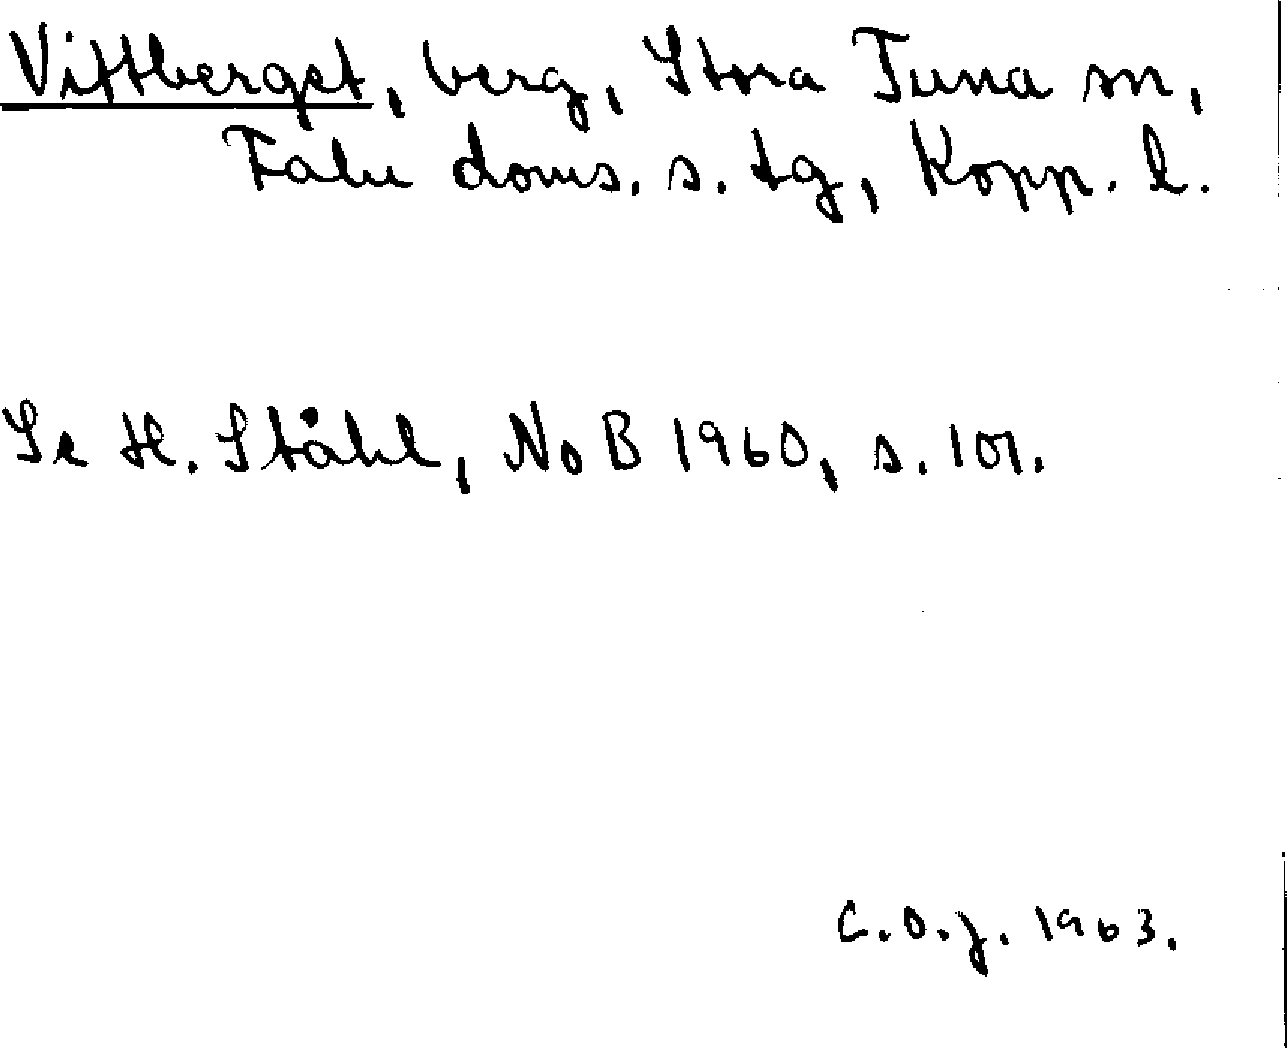 Vittberget, berg, Stora Tuna sn,
Falu doms. s. tg, Kopp. l.
Se H. Ståhl, NoB 1960, s. 101.
C.O.J. 1963.